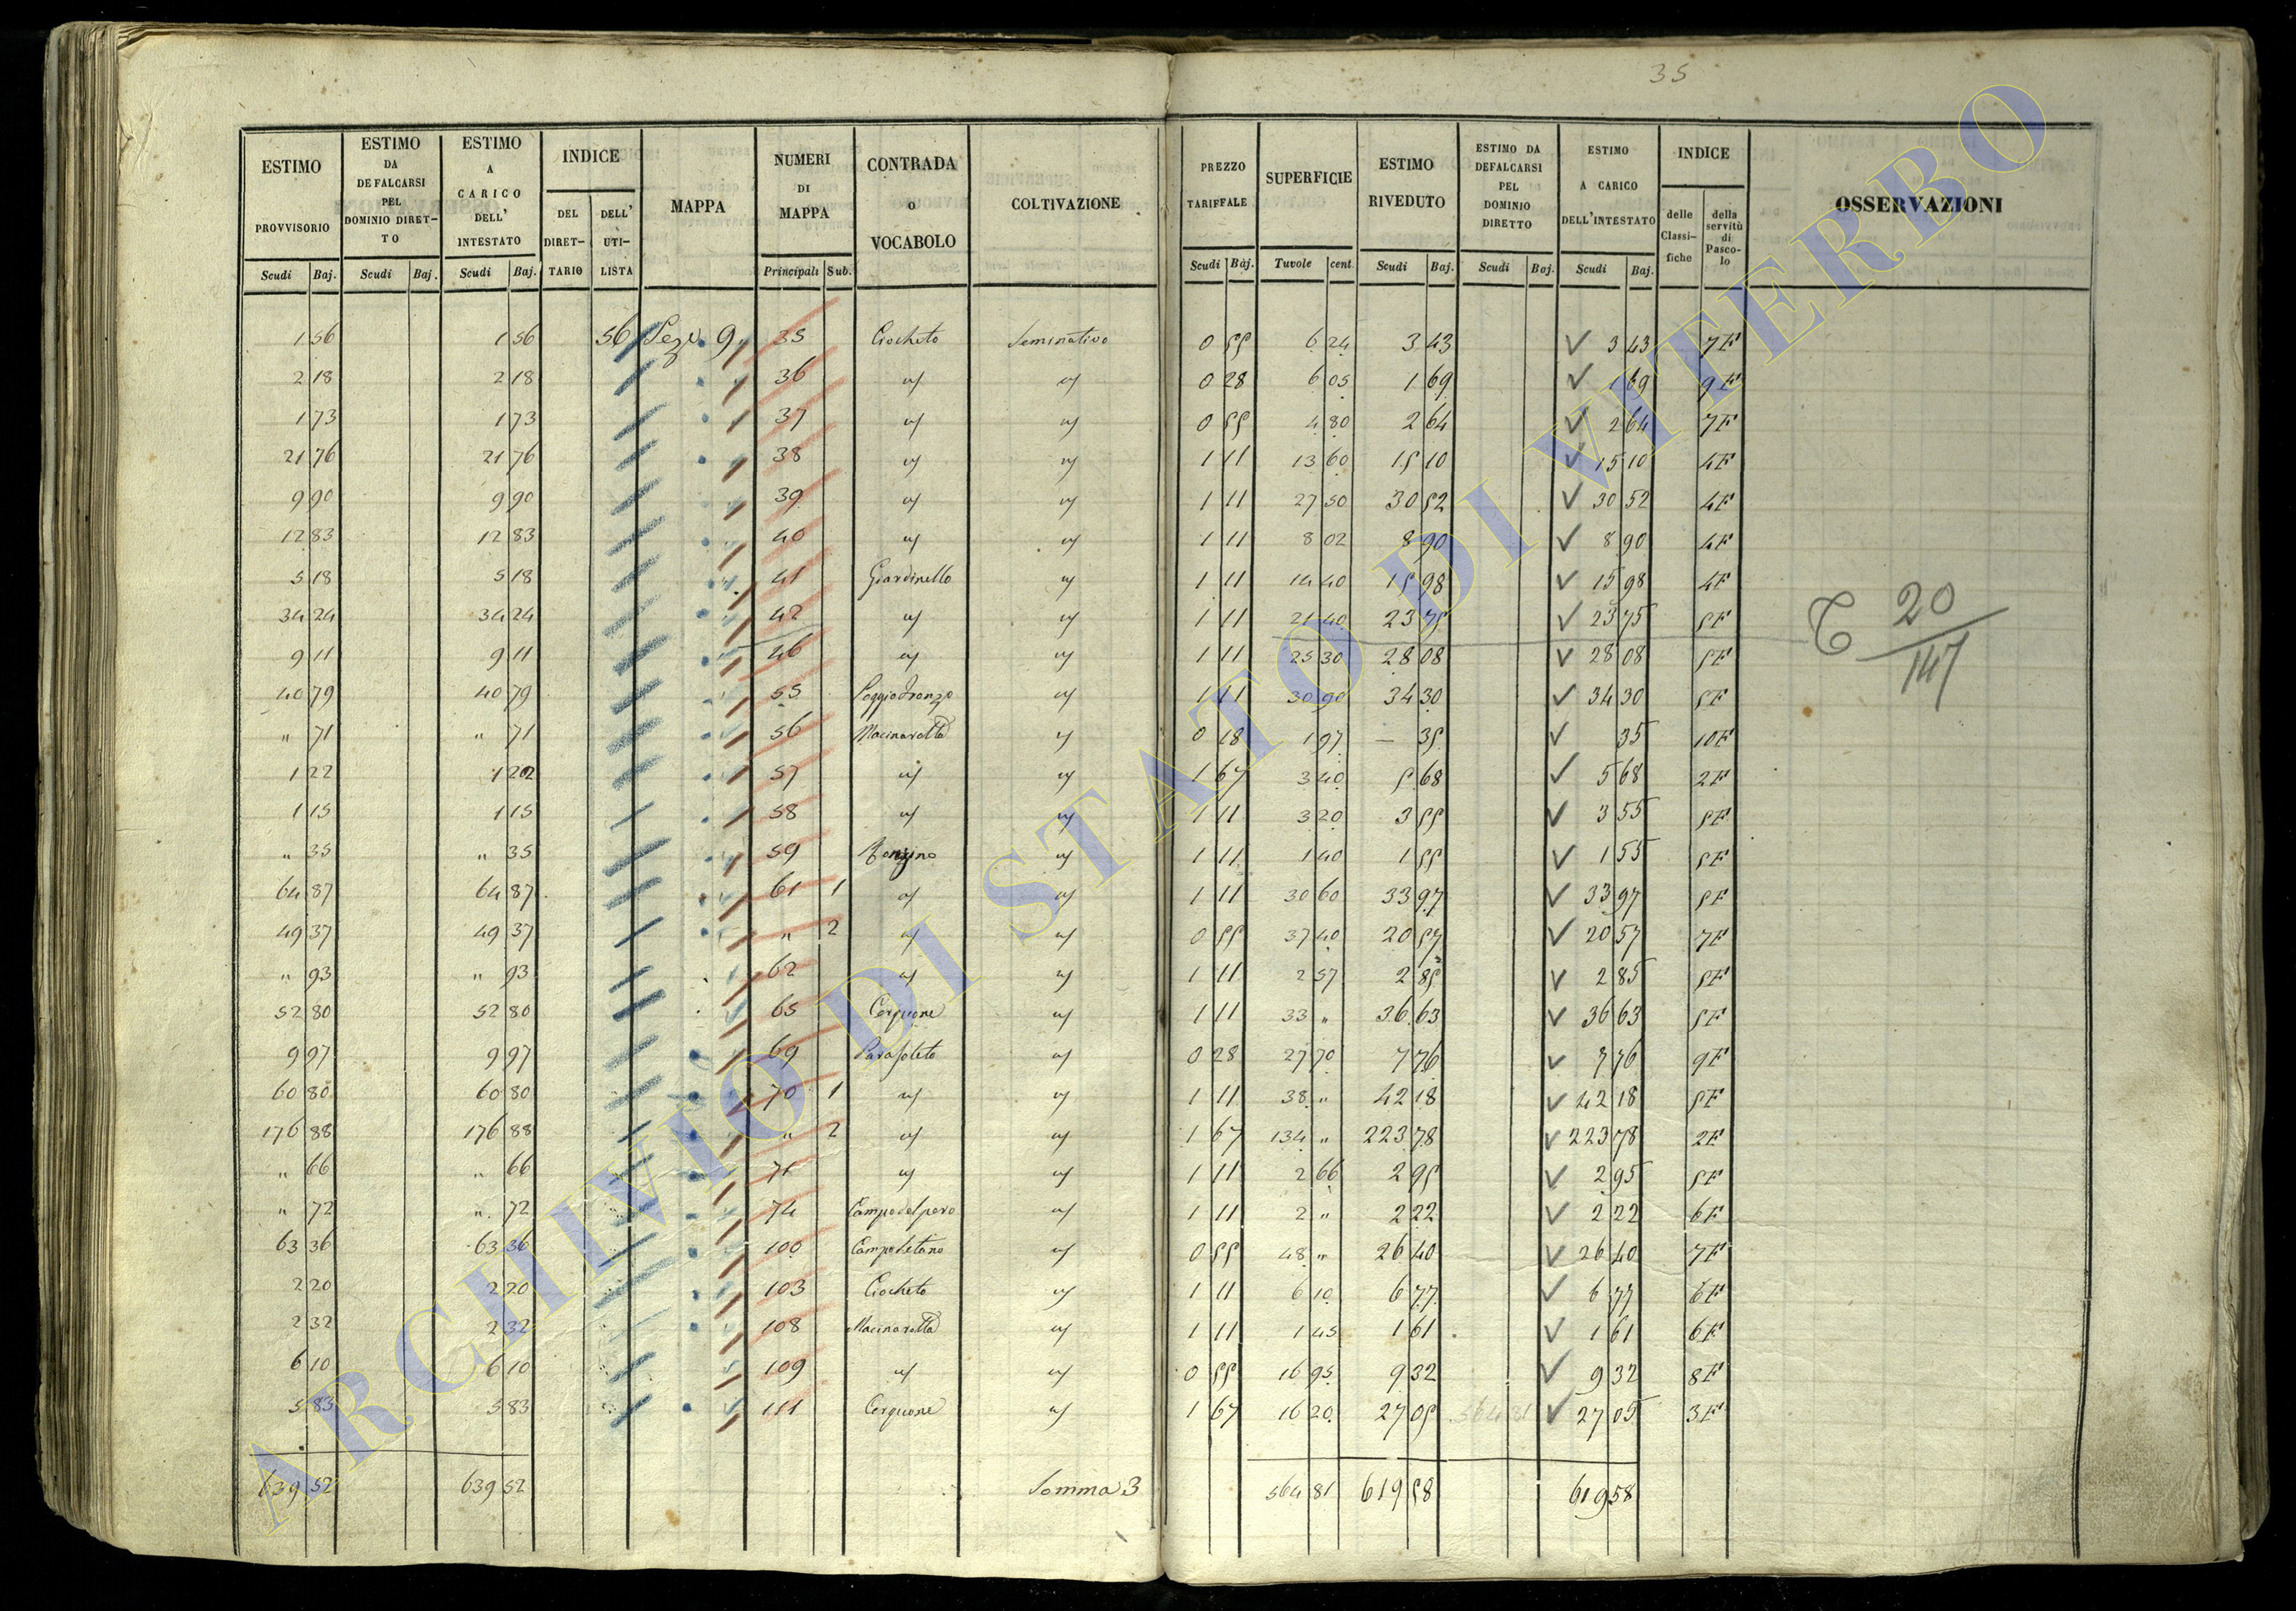 35
ESTIMO PROVVISORIO Scudi Baj. ESTIMO DA DEFALCARSI PEL DOMINIO DIRETTO Scudi Baj. ESTIMO A CARICO DELL' INTESTATO Scudi Baj. INDICE DEL DIRETTARIO DELL' UTILISTA MAPPA NUMERI DI MAPPA Principali Sub. CONTRADA O VOCABOLO COLTIVAZIONE PREZZO TARIFFALE Scudi Baj. SUPERFICIE Tavole cent. ESTIMO RIVEDUTO Scudi Baj. ESTIMO DA DEFALCARSI PEL DOMINIO DIRETTO Scudi Baj. ESTIMO A CARICO DELL'INTESTATO Scudi Baj. INDICE delle Classifiche della servitù di Pascolo OSSERVAZIONI
1 56 1 56 56 Sez. 9 35 Ciocheto Seminativo 0 55 6 24 3 43 ✓ 3 43 7F
2 18 2 18 36 " " 0 28 6 05 1 69 ✓ 1 69 9F
1 73 1 73 37 " " 0 55 4 80 2 64 ✓ 2 64 7F
21 76 21 76 38 " " 1 11 13 60 15 10 ✓ 15 10 4F
9 90 9 90 39 " " 1 11 27 50 30 52 ✓ 30 52 4F
12 83 12 83 40 " " 1 11 8 02 8 90 ✓ 8 90 4F
5 18 5 18 41 Giardinello " 1 11 14 40 15 98 ✓ 15 98 4F
34 24 34 24 42 " " 1 11 21 40 23 75 ✓ 23 75 5F
9 11 9 11 46 " " 1 11 25 30 28 08 ✓ 28 08 5F
20/147
40 79 40 79 55 " 1 11 30 90 34 30 ✓ 34 30 5F
" 71 " 71 56 Macinarotta " 0 18 1 97 — 35 ✓ 35 10F
1 22 1 22 57 " " 1 67 3 40 5 68 ✓ 5 68 2F
1 15 1 15 58 " " 1 11 3 20 3 55 ✓ 3 55 5F
" 35 " 35 59 " 1 11 1 40 1 55 ✓ 1 55 5F
64 87 64 87 61 1 " " 1 11 30 60 33 97 ✓ 33 97 5F
49 37 49 37 " 2 " " 0 55 37 40 20 57 ✓ 20 57 7F
" 93 " 93 62 " " 1 11 2 57 2 85 ✓ 2 85 5F
52 80 52 80 65 Cerquone " 1 11 33 " 36 63 ✓ 36 63 5F
9 97 9 97 69 " 0 28 27 70 7 76 ✓ 7 76 9F
60 80 60 80 70 1 " " 1 11 38 " 42 18 ✓ 42 18 5F
176 88 176 88 " 2 " " 1 67 134 " 223 78 ✓ 223 78 2F
" 66 " 66 71 " " 1 11 2 66 2 95 ✓ 2 95 5F
" 72 " 72 74 Campo del pero " 1 11 2 " 2 22 ✓ 2 22 6F
63 36 63 36 100 " 0 55 48 " 26 40 ✓ 26 40 7F
2 20 2 20 103 Ciocheto " 1 11 6 10 6 77 ✓ 6 77 6F
2 32 2 32 108 Macinarotta " 1 11 1 45 1 61 ✓ 1 61 6F
6 10 6 10 109 " " 0 55 16 95 9 32 ✓ 9 32 8F
5 83 5 83 111 Cerquone " 1 67 16 20 27 05 564 81 ✓ 27 05 3F
639 52 639 52 Somma 3 564 81 619 58 619 58
ARCHIVIO DI STATO DI VITERBO